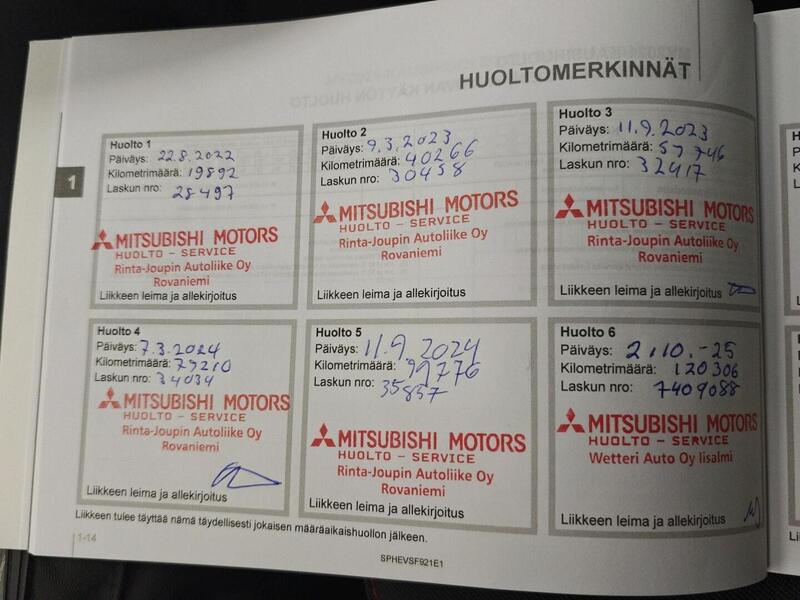 HUOLTOMERKINNÄT
1
Huolto 1
Päiväys: 22.8.2022
Kilometrimäärä: 19892
Laskun nro: 28497
MITSUBISHI MOTORS
HUOLTO - SERVICE
Rinta-Joupin Autoliike Oy
Rovaniemi
Liikkeen leima ja allekirjoitus
Huolto 2
Päiväys: 9.3.2023
Kilometrimäärä: 40266
Laskun nro: 30458
MITSUBISHI MOTORS
HUOLTO - SERVICE
Rinta-Joupin Autoliike Oy
Rovaniemi
Liikkeen leima ja allekirjoitus
Huolto 3
Päiväys: 11.9.2023
Kilometrimäärä: 57746
Laskun nro: 32417
MITSUBISHI MOTORS
HUOLTO - SERVICE
Rinta-Joupin Autoliike Oy
Rovaniemi
Liikkeen leima ja allekirjoitus
Huolto 4
Päiväys: 7.3.2024
Kilometrimäärä: 79210
Laskun nro: 34034
MITSUBISHI MOTORS
HUOLTO - SERVICE
Rinta-Joupin Autoliike Oy
Rovaniemi
Liikkeen leima ja allekirjoitus
Huolto 5
Päiväys: 11.9.2024
Kilometrimäärä: 99776
Laskun nro: 35857
MITSUBISHI MOTORS
HUOLTO - SERVICE
Rinta-Joupin Autoliike Oy
Rovaniemi
Liikkeen leima ja allekirjoitus
Huolto 6
Päiväys: 2.10.-25
Kilometrimäärä: 120306
Laskun nro: 7409088
MITSUBISHI MOTORS
HUOLTO - SERVICE
Wetteri Auto Oy Iisalmi
Liikkeen leima ja allekirjoitus
Liikkeen tulee täyttää nämä täydellisesti jokaisen määräaikaishuollon jälkeen.
1-14
SPHEVSF921E1